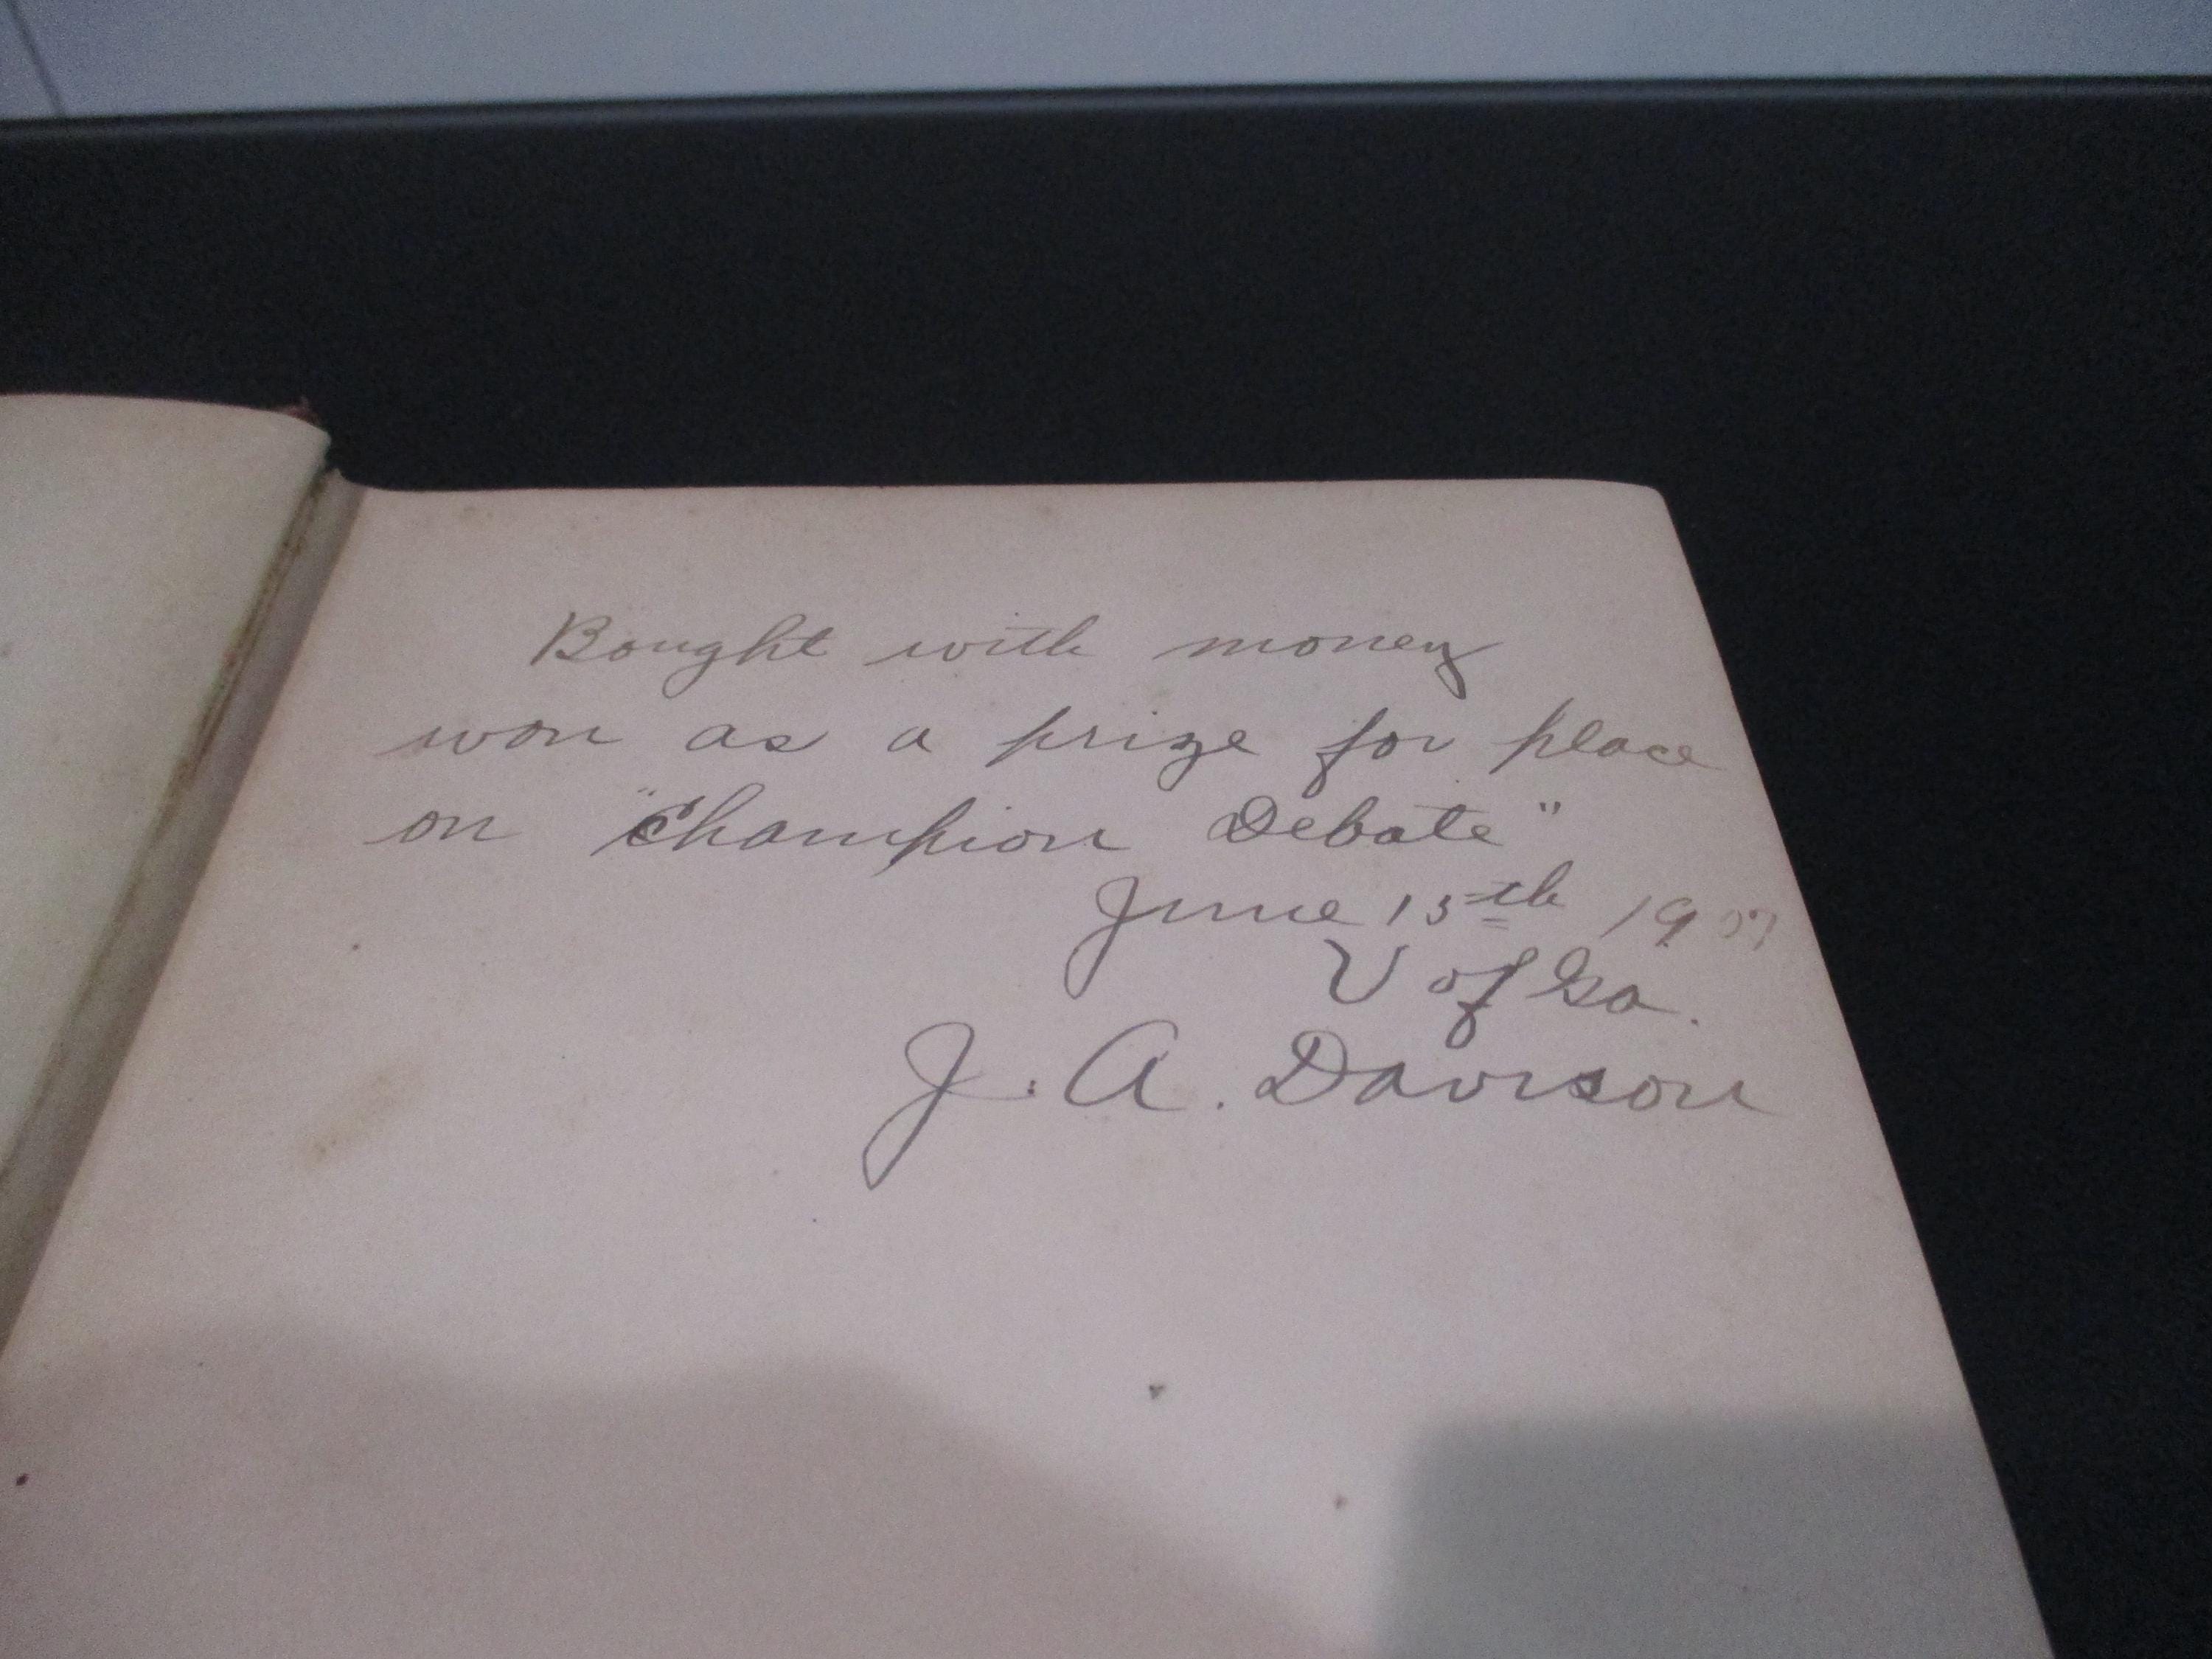 Bought with money
won as a prize for place
on "Champion Debate"
June 15th 1907
U of Ga.
J. A. Davison